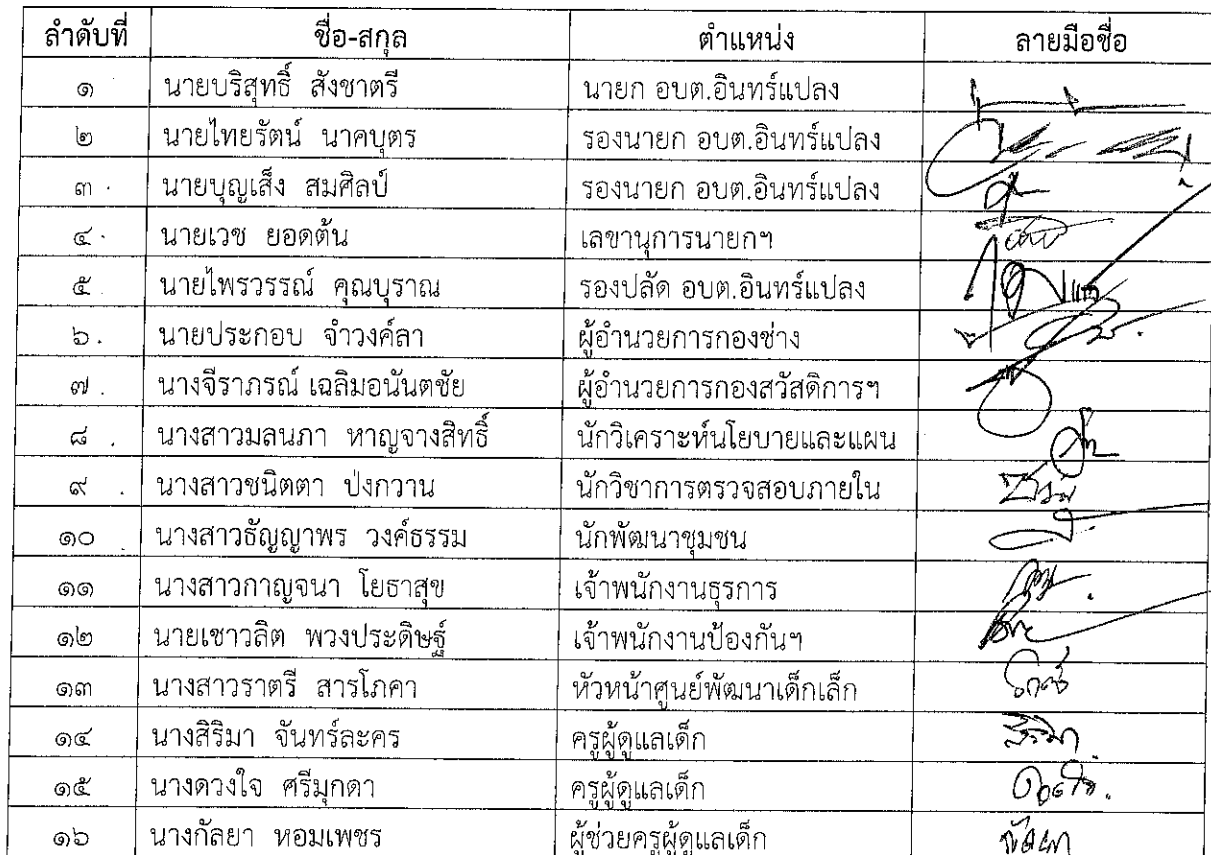 ลำดับที่ ชื่อ-สกุล ตำแหน่ง ลายมือชื่อ
๑ นายบริสุทธิ์ สังชาตรี นายก อบต.อินทร์แปลง
๒ นายไทยรัตน์ นาคบุตร รองนายก อบต.อินทร์แปลง
๓ นายบุญเส็ง สมศิลป์ รองนายก อบต.อินทร์แปลง
๔ นายเวช ยอดต้น เลขานุการนายกฯ
๕ นายไพรวรรณ์ คุณบุราณ รองปลัด อบต.อินทร์แปลง
๖ นายประกอบ จำวงค์ลา ผู้อำนวยการกองช่าง
๗ นางจีราภรณ์ เฉลิมอนันตชัย ผู้อำนวยการกองสวัสดิการฯ
๘ นางสาวมลนภา หาญจางสิทธิ์ นักวิเคราะห์นโยบายและแผน
๙ นางสาวชนิตตา ป่งกวาน นักวิชาการตรวจสอบภายใน
๑๐ นางสาวธัญญาพร วงค์ธรรม นักพัฒนาชุมชน
๑๑ นางสาวกาญจนา โยธาสุข เจ้าพนักงานธุรการ
๑๒ นายเชาวลิต พวงประดิษฐ์ เจ้าพนักงานป้องกันฯ
๑๓ นางสาวราตรี สารโภคา หัวหน้าศูนย์พัฒนาเด็กเล็ก
๑๔ นางสิริมา จันทร์ละคร ครูผู้ดูแลเด็ก
๑๕ นางดวงใจ ศรีมุกดา ครูผู้ดูแลเด็ก
๑๖ นางกัลยา หอมเพชร ผู้ช่วยครูผู้ดูแลเด็ก